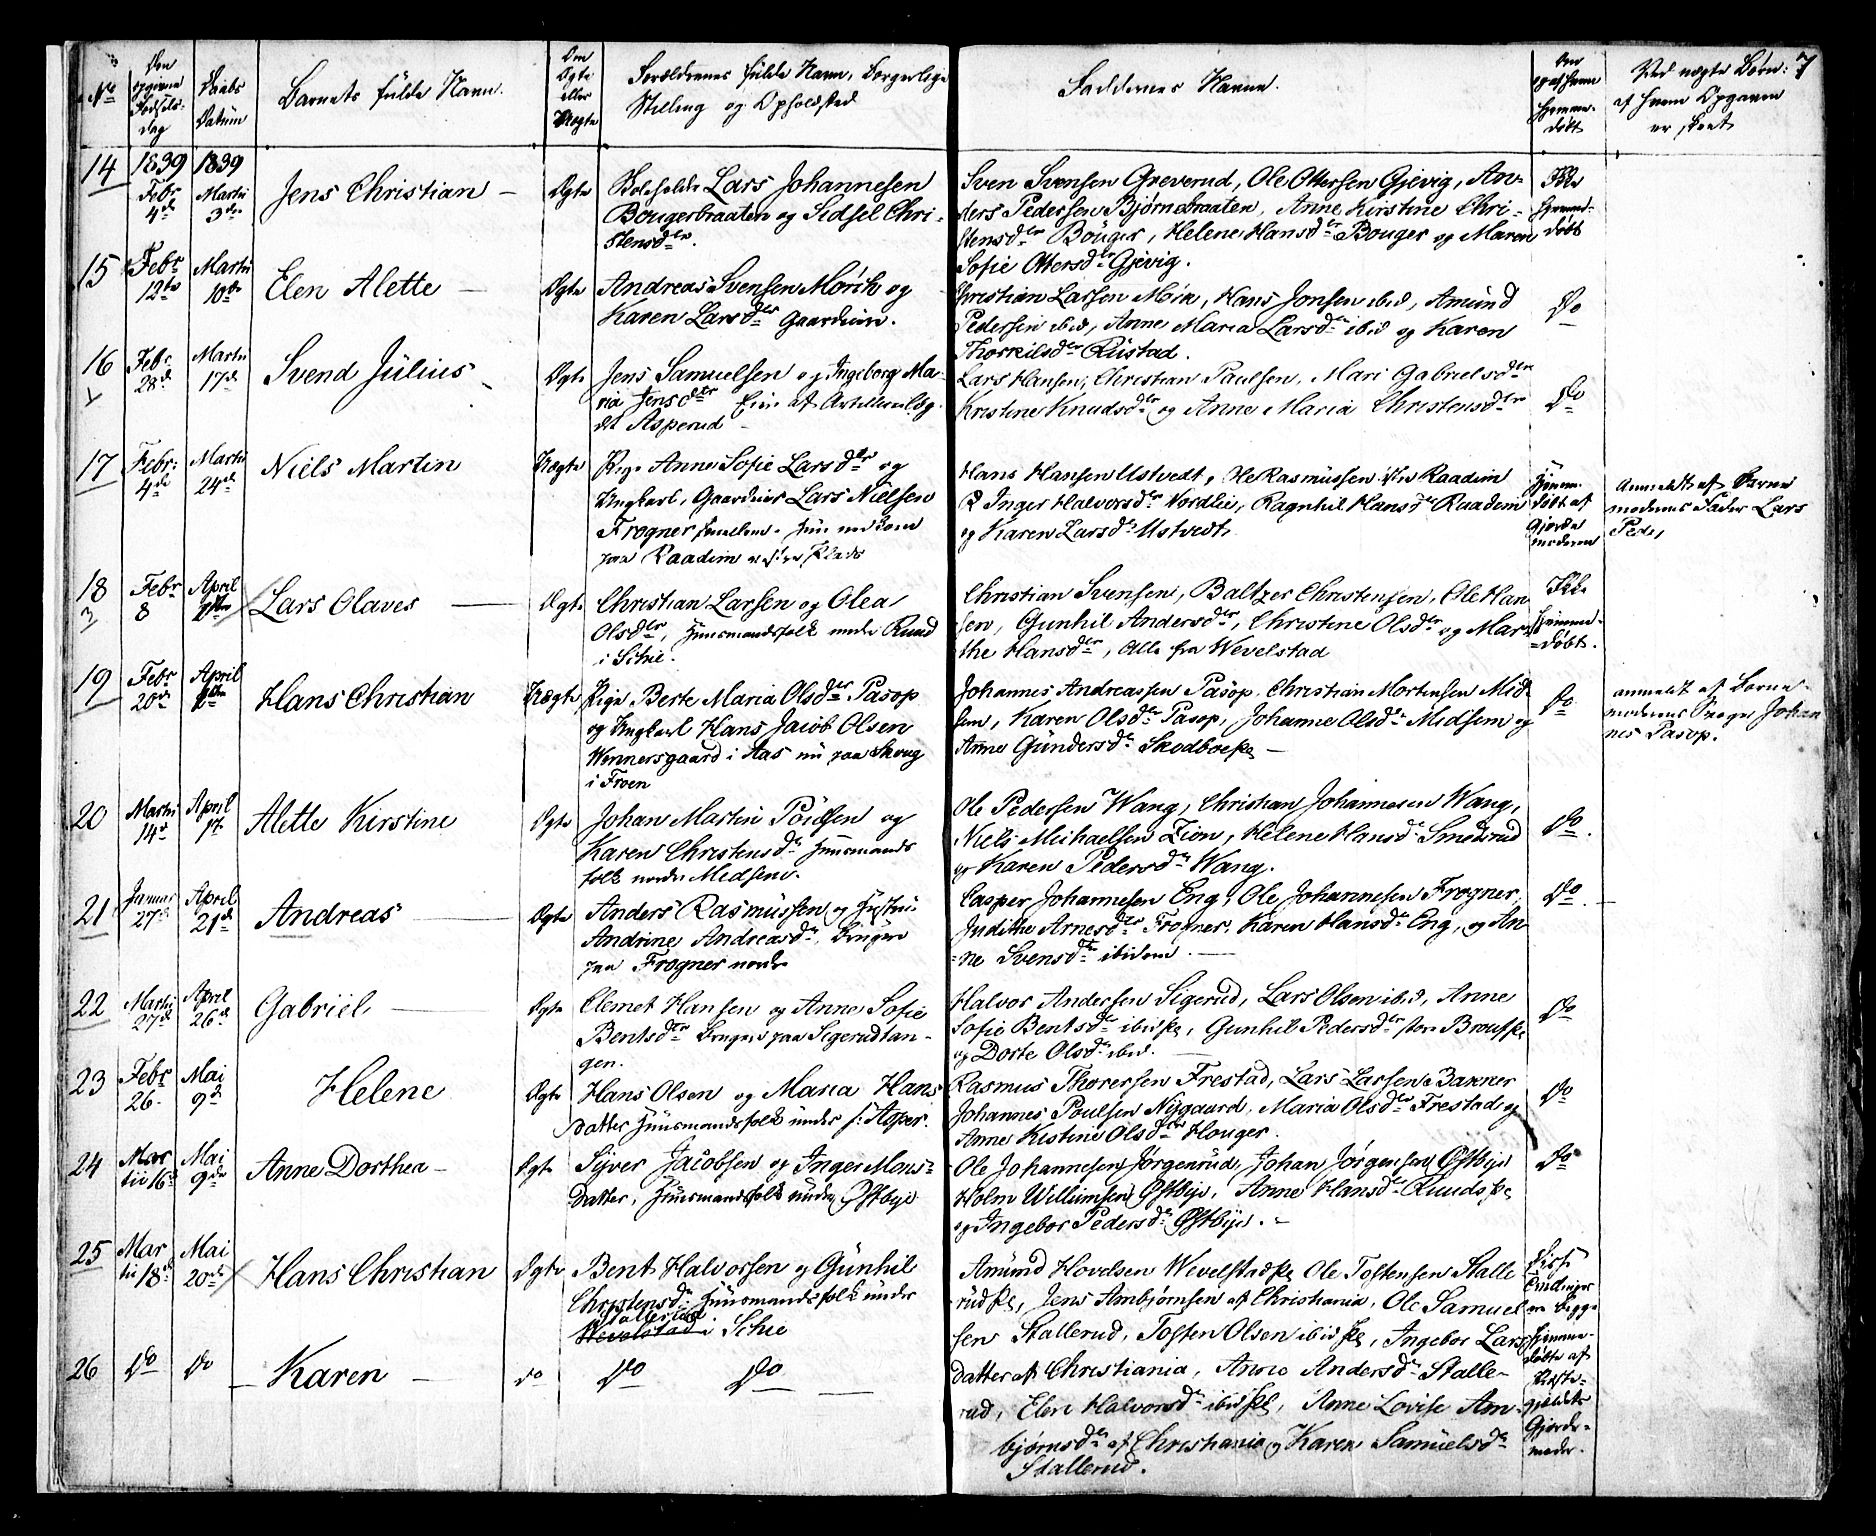 No
Den opgivne Fødsels-dag
Daabs Datum
Barnets fulde Navn.
Om Ægte eller Uægte
Forældrenes fulde Navn, borgerlige
Stilling og Opholdsted
Faddernes Navne.
Om hjemme-døbt
Ved uægte Børn:
af hvem Opgaven
er skeet
7
14
1839 Febr 4de
1839 Martii 3die
Jens Christian
Ægte
Lars Johannesen
Bougerbraaten og Sidsel Chri-
stensdtr.
Sven Svensen Greverud, Ole Ottersen Gjevig, An-
ders Pedersen Bjørnebraaten, Anne Kirstine Chri-
stensdtr Bouger, Helene Hansdtr Bouger og Maren
Sofie Ottersdtr Gjevig.
Ikke hjemme-døbt
15
Febr 12te
Martii 10de
Elen Alette
Ægte
Andreas Svensen Mørch og
Karen Larsdtr Gaardeiere.
Christian Larsen Mørk, Hans Jonsen ibid, Amund
Pedersen ibid, Anne Maria Larsdtr ibid og Karen
Thorkilsdtr Rustad.
Do
16
Febr. 28de
Martii 17de
Svend Julius
Ægte
Jens Samuelsen og Ingeborg Ma-
ria Jensdtr
Asperud
Lars Hansen, Christian Paulsen, Mari Gabrielsdtr
Kristine Knudsdtr og Anne Maria Christensdtr
Do
17
Febr: 4de
Martii 24de
Niels Martin
Uægte
Pige Anne Sofie Larsdtr og
Ungkarl, Gaardeier Lars Nielsen
Frogner
paa Raadim
Hans Hansen Ustvedt, Ole Rasmussen Raadim
Inger Halvorsdtr Nordlie, Ragnhil Hansdtr Raadim
og Karen Larsdtr Ustvedt.
Hjemme-døbt af Gjorde moderen
Anmeldt af Barne
moderens Fader Lars
Peders
18
3
Febr 8
April 1ste
Lars Olaves
Ægte
Christian Larsen og Olea
Olsdtr, Huusmandsfolk under Ruud
i Schie.
Christian Svensen, Baltzer Christensen, Ole Han
sen, Gunhil Andersdtr, Christine Olsdtr og Mar
the Hansdtr, Alle fra Wevelstad
Ikke hjemme-døbt.
19
Febr 20de
April 1ste
Hans Christian
Uægte
Pige Berte Maria Olsdtr Pasop
og Ungkarl Hans Jacob Olsen
Wennersgaard i Aas nu paa Skoug
i Froen
Johannes Andreassen Pasop, Christian Mortensen Mid
sem, Karen Olsdtr Pasop, Johanne Olsdtr Midsem og
Anne Gundersdtr
Do
anmeldt af Barne-
moderens Johan
nes Pasop.
20
Martii 14de
April 1ste
Alette Kirstine
Ægte
Johan Martin og
Karen Christensdtr Huusmands
folk under Midsem.
Ole Pedersen Wang, Christian Johannesen Wang,
Niels Michaelsen Zion, Helene Hansdtr Smedsrud
og Karen Pedersdtr Wang.
Do
21
Januar 27de
April 21de
Andreas
Ægte
Anders Rasmussen og Hustru
Andrine Andreasdtr, Brugere
paa Frogner nordre
Casper Johannesen Eng, Ole Johannesen Frogner,
Judithe Arnesdtr Frogner, Karen Hansdtr Eng, og An
ne Svensdtr ibidem.
Do
22
Martii 27de
April 26de
Gabriel
Ægte
Clemet Hansen og Anne Sofie
Bentsdtr Brugere paa Sigerudtan-
gen.
Halvor Andersen Sigerud, Lars Olsen ibid, Anne
Sofie Bentsdtr ibid, Gunhil Pedersdtr
og Dorte Olsdtr ibid.
Do
23
Febr 26
Mai 9de
Helene
Ægte
Hans Olsen og Maria Hans
datter Huusmandsfolk under Asper.
Rasmus Thorersen Frestad, Lars Larsen
Johannes Poulsen Nygaard, Maria Olsdtr Frestad og
Anne Kistine Olsdtr Houger.
Do
24
Martii 16de
Mai 9de
Anne Dorthea
Ægte
Syver Jacobsen og Inger Mons-
datter, Huusmandsfolk under Østbye
Ole Johannesen Jørgenrud, Johan Jørgensen Østbye
Holm Willumsen Østbye, Anne Hansdtr
og Ingebor Pedersdtr Østbye.
Do
25
Martii 18de
Mai 20de
Hans Christian
Ægte
Bent Halvorsen og Gunhil
Christensdtr Huusmandsfolk under
Stallerud
Wevelstad i Schie
Amund Hovelsen Wevelstad Ole Tostensen Stalle
rud, Jens Ambjørnsen af Christiania, Ole Samuel
sen Stallerud, Tosten Olsen ibid, Ingebor Lars
datter af Christiania, Anne Andersdtr Stalle-
rud, Elen Halvorsdtr ibid, Anne Lovise Am-
bjørnsdtr af Christiania og Karen Samuelsdtr
Stallerud.
Disse Tvillinger ere begge hjemme-døbte af Gjorde-moder.
26
Do
Do
Karen
Do
Do Do